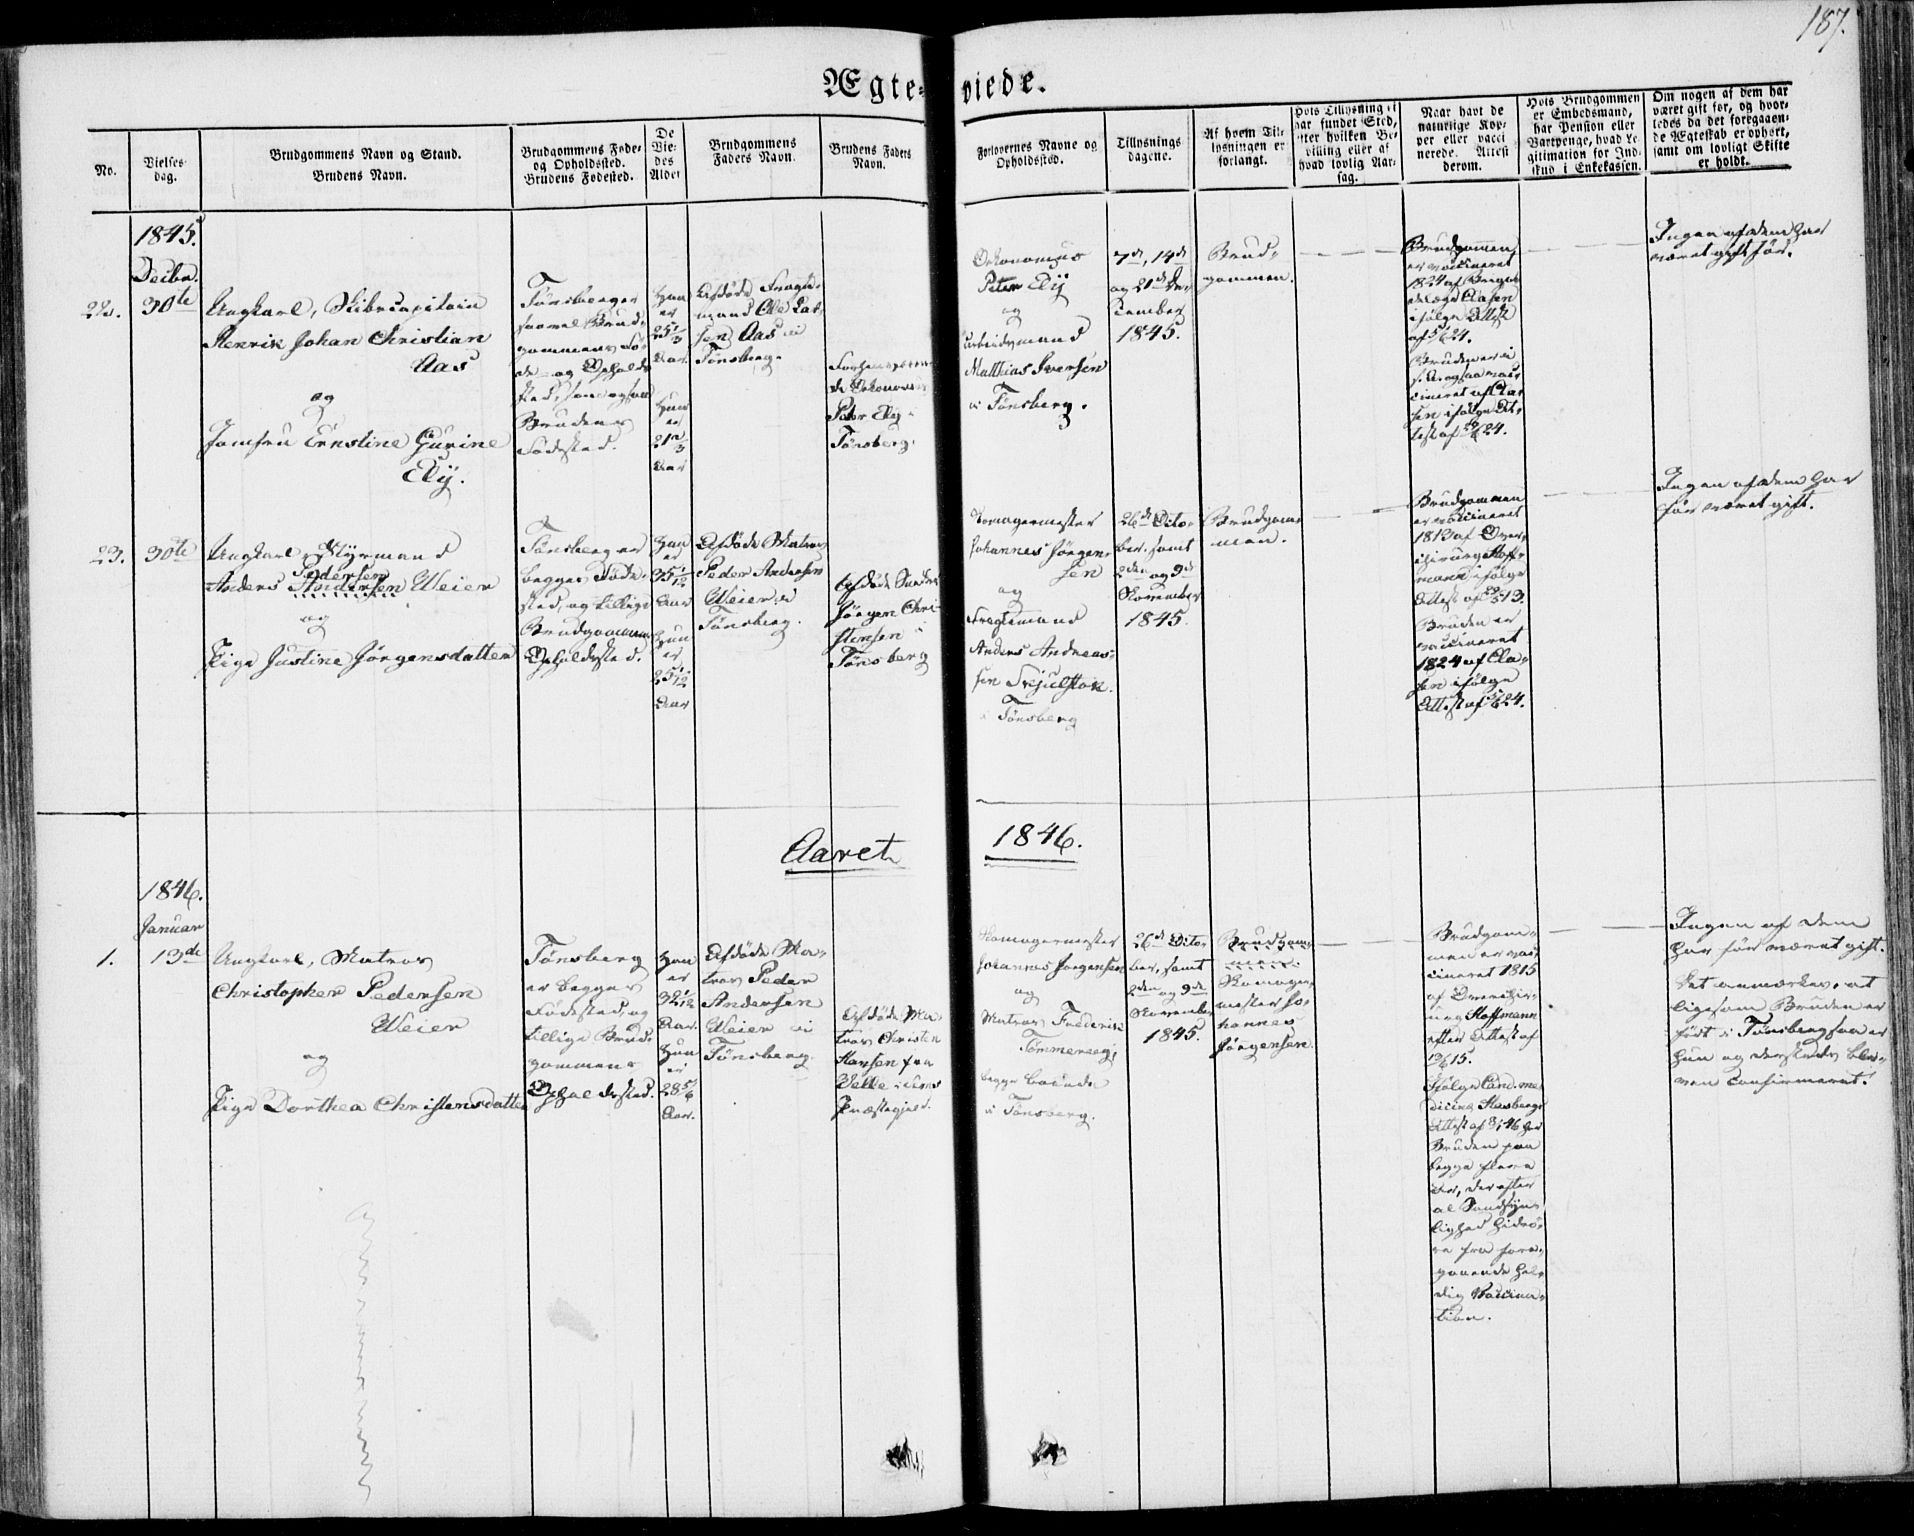 187.
Ægteviede.
No.
Vielses-
dag.
Brudgommens Navn og Stand.
Brudens Navn.
Brudgommens Føde-
og Opholdssted.
Brudens Fødested.
De
Vie-
des
Alder
Brudgommens
Faders Navn.
Brudens Faders
Navn.
Forlovernes Navne og
Opholdssted.
Tillysnings
dagene.
Af hvem Til-
lysningen er
forlangt.
Hvis Tillysning ei
har fundet Sted,
efter hvilken Be-
villing eller af
hvad lovlig Aar-
sag.
Naar havt de
naturlige Kop-
per eller vacci
nerede. Attest
derom.
Hvis Brudgommen
er Embedsmand,
har Pension eller
Vartpenge, hvad Le-
gitimation for Ind-
skud i Enkekassen.
Om nogen af dem har
været gift før, og hvor-
ledes da det foregaaen-
de Ægteskab er ophørt,
samt om lovligt Skifte
er holdt.
1845.
Decbr.
22.
30te
Ungkarl, Skibscapitain
Henrik Johan Christian
Aas
og
Jomfru Ernstine Gurine
Ely.
Tønsberg er
saavel Brud-
gommens Fø-
de- og Opholds-
sted, som ogsaa
Brudens
Fødested.
Han
er
25 1/3
Aar.
Hun
er
21 2/3
Aar
Afdøde Fragt-
mand Ole Lar-
sen Aas i
Tønsberg.
de Oekonomus
Peter Ely i
Tønsberg.
Oekonomus
Peter Ely
og
Arbeidsmand
Matthias Iversen
i Tønsberg.
7de, 14de
og 21de De-
cember
1845.
Brud-
gommen.
Brudgommen
er vaccineret
1824 af
Clasen
ifølge Attest
af
24.
Bruden er i
cineret af Cla-
sen ifølge At-
test af 24.
Ingen af dem har
været gift før.
23.
30te
Ungkarl, Styrmand
Pedersen
Anders Andersen Weier
og
Pige Justine Jørgensdatter
Tønsberg er
begges Føde-
sted, og tillige
Brudgommens
Opholdssted.
Han
er
35 1/12
Aar
Hun
er
25 1/12
Aar
Afdøde Matros
Peder Andersen
Weier i
Tønsberg.
Afdøde
Jørgen Chri-
stensen i
Tønsberg
Johannes Jørgen-
sen
og
Fragtmand
Anders Andreas-
sen Trejulstok
i Tønsberg
26de Octo-
ber, samt
2den og 9de
November
1845.
Brudgom-
men.
Brudgommen
er vaccineret
1813 af Over-
chirurg Hoff-
mann ifølge
Attest af 13.
Bruden er
vaccineret
1824 af Cla-
sen ifølge
Attest af 24.
Ingen af dem har
før været gift.
Aaret 1846.
1846.
Januar
1.
13de
Ungkarl, Matros
Christopher Pedersen
Weier
og
Pige Dorthea Christensdatter
Tønsberg
er begges
Fødested, og
tillige Brud-
gommens
Opholdssted.
Han
er
32 1/12
Aar.
Hun
er
28 5/6
Aar.
Afdøde Ma-
tros Peder
Andersen
Weier i
Tønsberg.
Afdøde Ma-
tros Christen
Hansen fra
Velle i Sems
Præstegjeld.
Skomagermester
Johannes Jørgensen
og
Matros Frederik
Tømmereeg,
begge boende
i Tønsberg.
26de Octo-
ber, samt
2den og 9de
November
1845.
Brudgom-
men.
Skomager-
mester Jo-
hannes
Jørgensen.
Brudgom-
men er vac-
cineret 1815
af Overchir-
urg Hoffmann
efter Attest af
15.
Ifølge Cand. me-
dicinæ
Attest af 46 har
Bruden paa
begge flere
Ar, der efter
al Sandsyn-
lighed hidrø-
re fra fore-
gaaende hel-
dig Vaccina-
tion.
Ingen af dem
har før været gift.
Det anmærkes, at
ligesom Bruden er
født i Tønsberg saa er
hun og dersteds ble-
ven confirmeret.